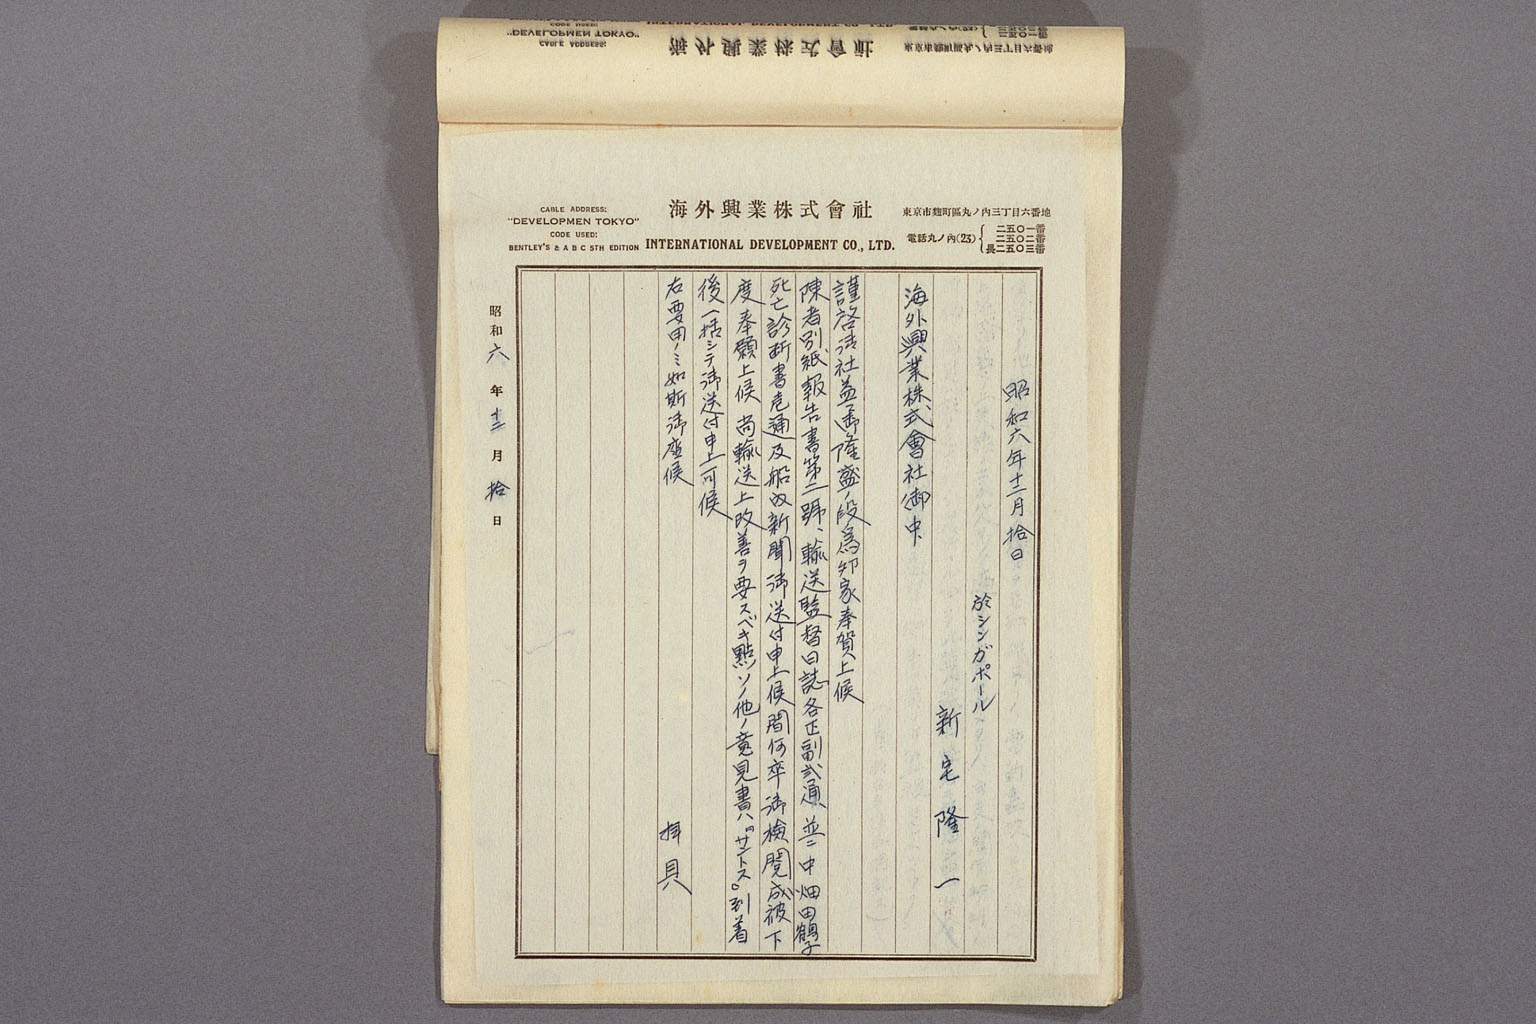 CABLE ADDRESS:
"DEVELOPMEN TOKYO"
CODE USED:
BENTLEY'S & A B C 5TH EDITION
海外興業株式會社
INTERNATIONAL DEVELOPMENT CO., LTD.
東京市麹町區丸ノ內三丁目六番地
電話丸ノ內(23)
二五〇一番
二五〇二番
長二五〇三番
昭和六年十二月拾日
於シンガポール
新宅隆一
海外興業株式會社御中
謹啓御社益御隆盛ノ段為邦家奉賀上候
陳者別紙報告書第二號、輸送監督日誌各正副弐通、並ニ中畑田鶴子
死亡診断書壱通及船內新聞御送付申上候間何卒御檢閲成被下
度奉願上候 尚輸送上改善ヲ要スベキ點ソノ他ノ意見書ハ"サントス"到着
後一括シテ御送付申上可候
右要用ノミ如斯御座候
拝具
昭和六年十二月拾日